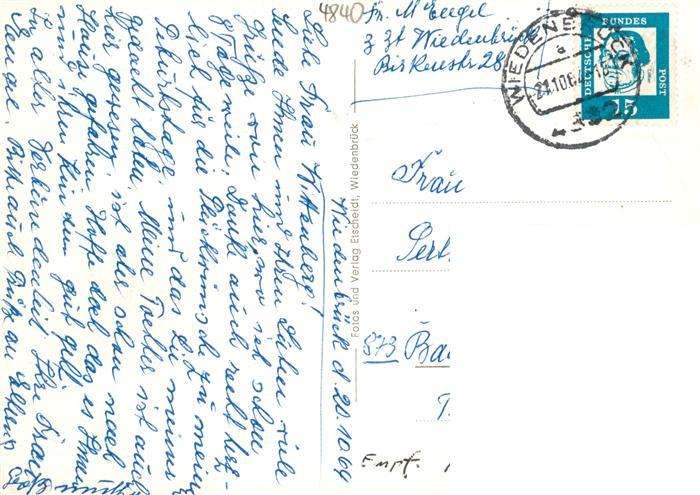 4840
Fr. M Seegel
z Zt Wiedenbrück
Birkenstr 28
WIEDENBRÜCK
a
21.10.6
DEUTSCHE BUNDES POST
15
Frau
873 Ba
Empf.
Fotos und Verlag Etscheidt, Wiedenbrück
Wiedenbrück d. 20.10.64
Liebe Frau Wittenberg!
Sende Ihnen und Ihren Lieben viele
Grüße von hier, wo ich schon
8 Tage weile. Danke auch recht herz-
lich für die Glückwünsche zu meinem
Geburtstage und das Sie meiner
gedacht haben. Meine Tochter ist auch
hier gewesen, ist aber schon nach
Haus gefahren. Hoffe doch das es Ihnen
und Ihren Kindern gut geht.
In alter Verbundenheit Ihre Frau
Bitte auch Grüße an